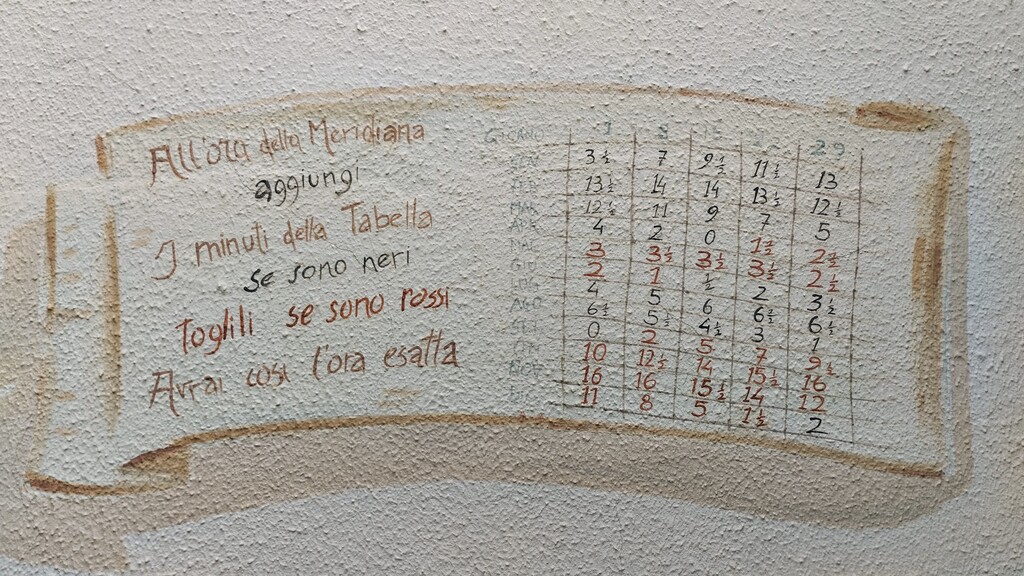 All'ora della Meridiana
aggiungi
I minuti della Tabella
se sono neri
Toglili se sono rossi
Avrai così l'ora esatta
GIORNO 1 8 15 22 29
GEN 3½ 7 9½ 11½ 13
FEB 13½ 14 14 13½ 12½
MAR 12½ 11 9 7 5
APR 4 2 0 1½ 2½
MAG 3 3½ 3½ 3½ 2½
GIU 2 1 ½ 2 3½
LUG 4 5 6 6½ 6½
AGO 6½ 5½ 4½ 3 1
SET 0 2 5 7 9½
OTT 10 12½ 14 15½ 16
NOV 16 16 15½ 14 12
DIC 11 8 5 1½ 2